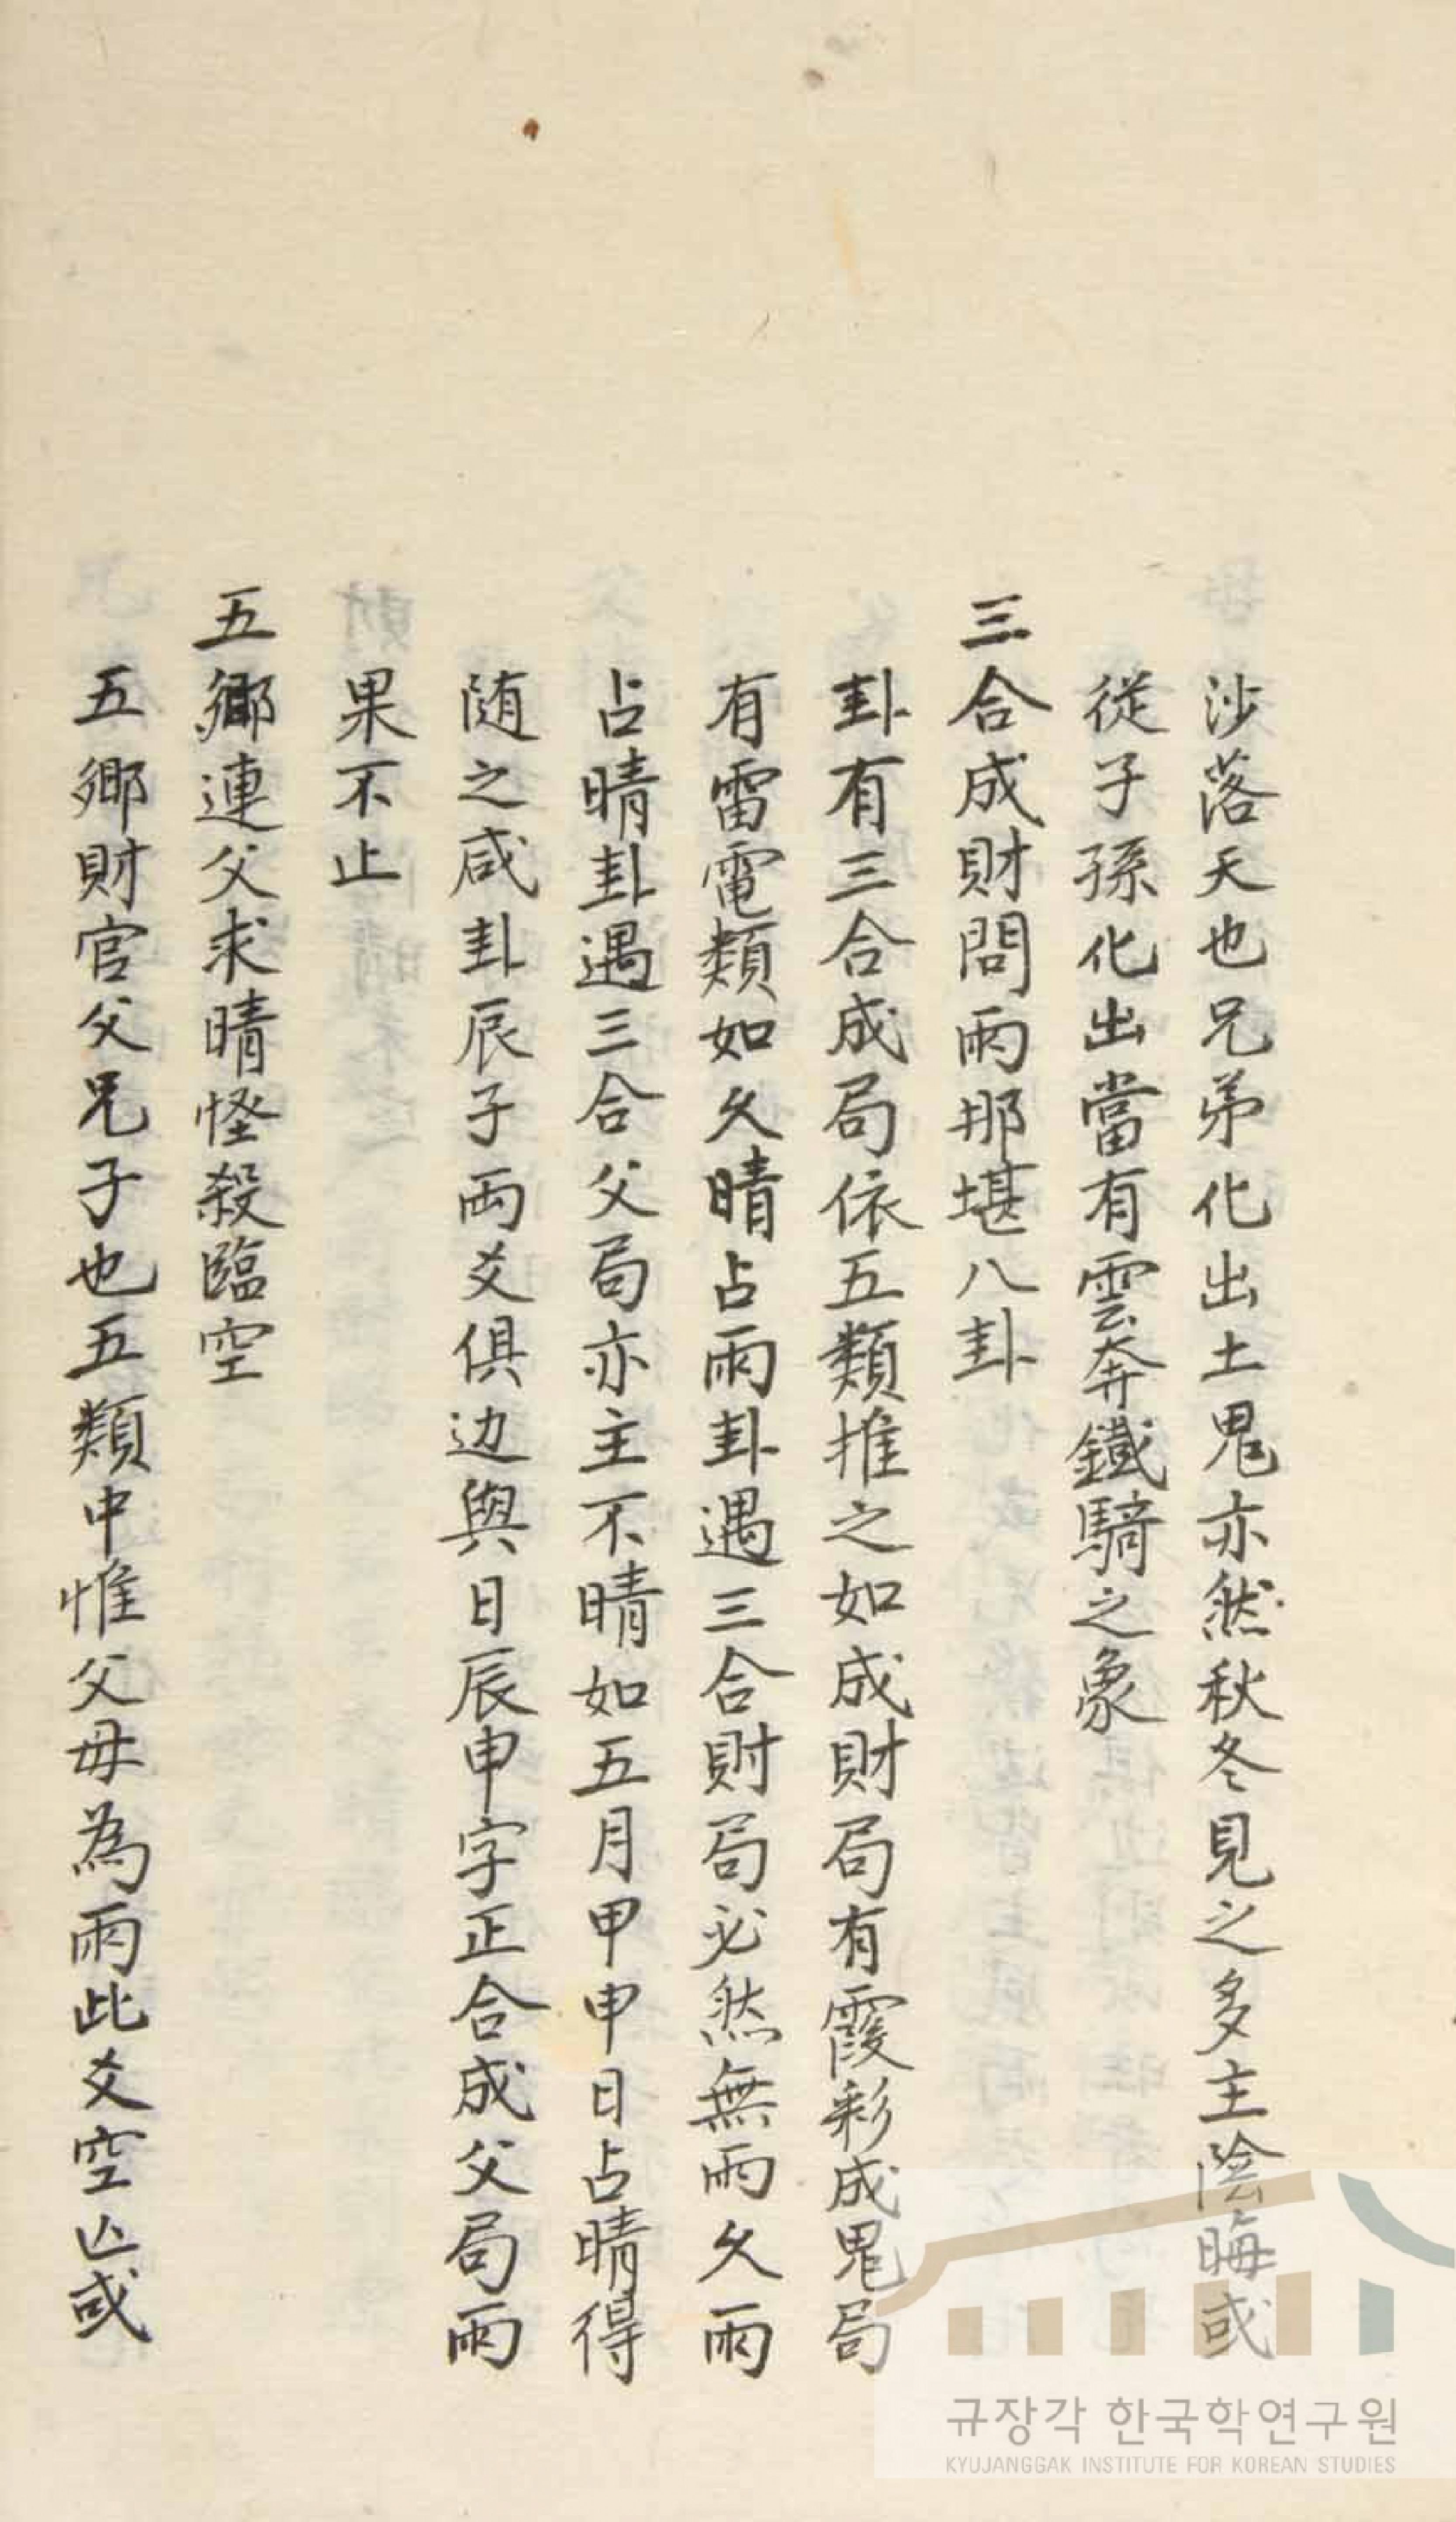 沙落天也兄弟化出土鬼亦然秋冬見之多主陰晦或
從子孫化出當有雲奔鐵騎之象
三合成財問雨那堪八卦
卦有三合成局依五類推之如成財局有霞彩成鬼局
有雷電類如久晴占雨卦遇三合財局必然無雨久雨
占晴卦遇三合父局亦主不晴如五月甲申日占晴得
随之咸卦辰子両爻俱边與日辰申字正合成父局雨
果不止
五鄉連父求晴怪殺臨空
五鄉財官父兄子也五類中惟父母為雨此爻空亡或
규장각 한국학연구원
KYUJANGGAK INSTITUTE FOR KOREAN STUDIES